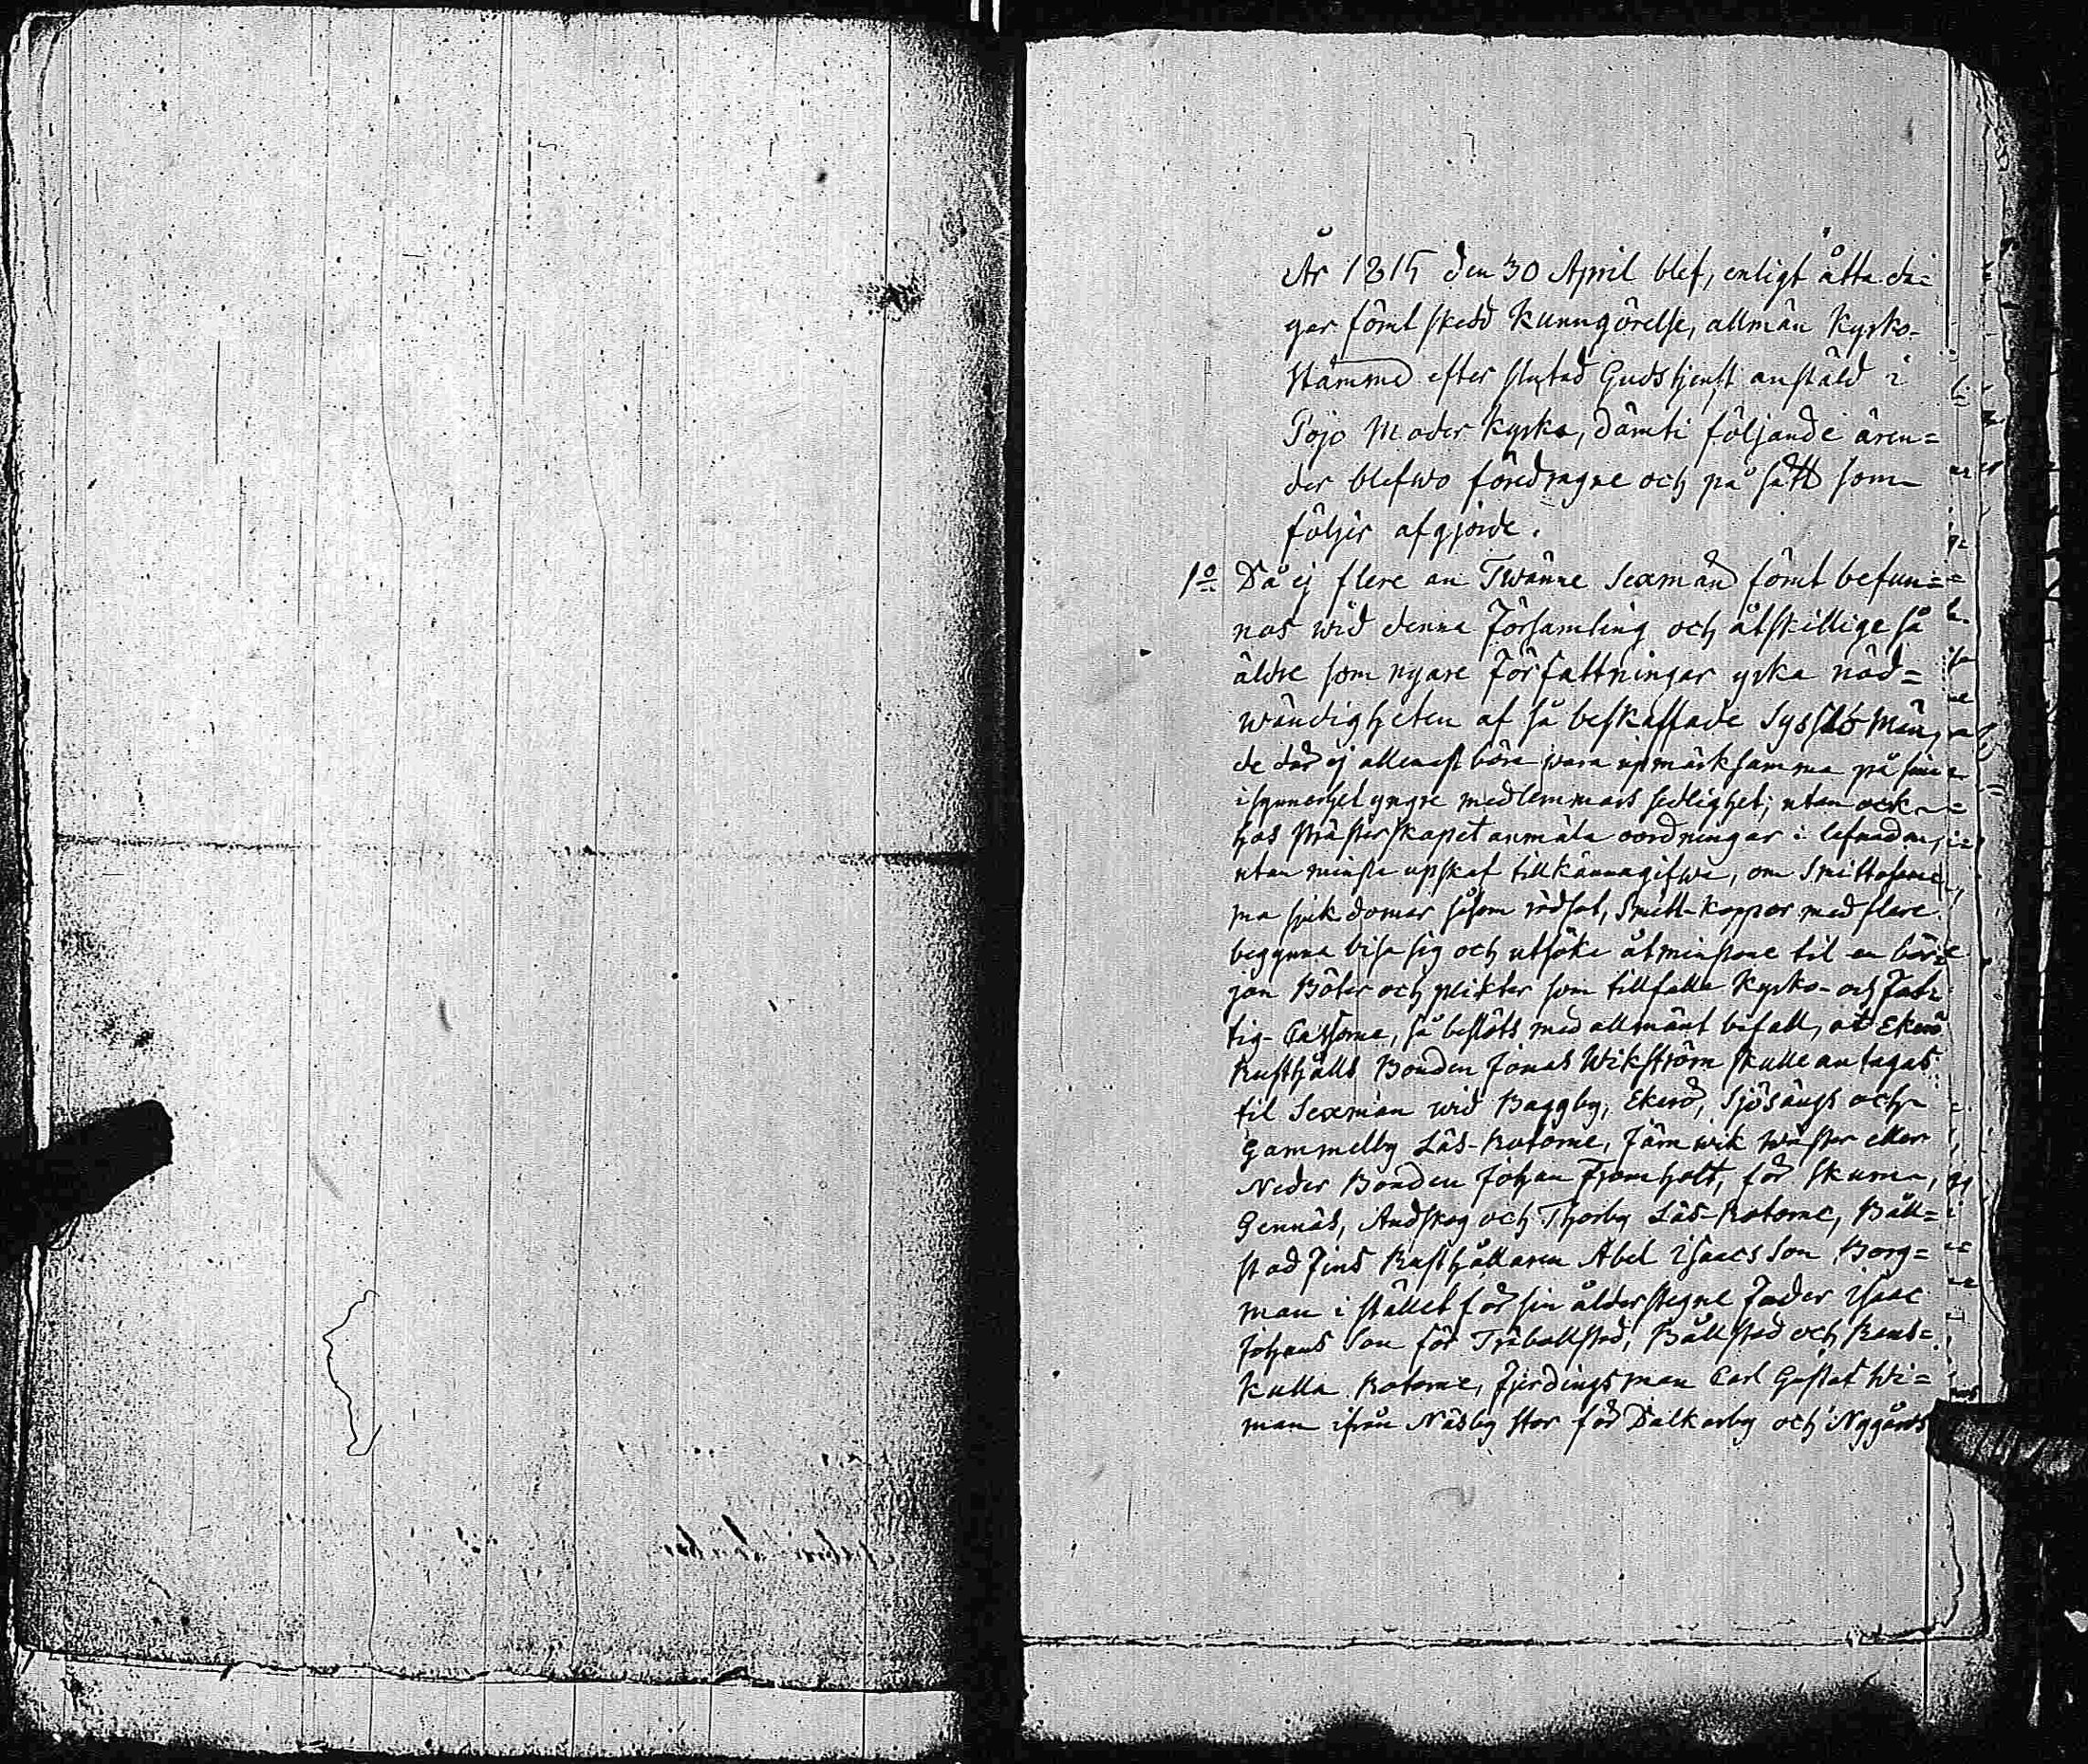 År 1815 den 30 April blef, enligt åtta da=
gar förut skedd Kunngörelse, allmän Kyrko-
Stämma efter slutad Gudstjenst anstäld i
Pojo Moder Kyrka, därvti följande ären=
der blefwo föredragne och på sätt som
följer afgjorde.
1o Då ej flere än Twänne Sexmän förut befun=
nos wid denna Församling och åtskillige så
äldre som nyare Författningar yrka nöd=
wändigheten af så beskaffade Sysslo Män,
de där ej allenast böra wara upmärksamma på sina
i synnerhet yngre medlemmars sedlighet, utan ock
hos Prästerskapet anmäla oordningar i lefnaden,
utan minsta upskof tillkännagifwa, om Smittosam=
ma sjukdomar såsom rödsot, Smitt-koppor med flere
begynna visa sig och utsöka åtminstone til en bör=
jan Böter och plikter som tillfalla Kyrko- och Fat=
tig-Cassorne, så beslöts med allmänt bifall, at Ekerö
Rusthålls Bonden Jonas Wikström skulle antagas
til Sexman wid Baggby, Ekerö, Sjösängs och
Gammelby Läs-Rotorne, Järnwik Wäster eller
Neder Bonden Johan Fromholt, för Skuru,
Gennäs, Andskog och Thorby Läs-Rotorne, Båll=
stad Jins Rusthållaren Abel Isaacs Son Borg=
man i stället för sin ålderstegne Fader Isaac
Johans Son för Träbollstad, Bållstad och Rans=
kulla Rotorne, Fjerdingsman Carl Gustaf Wi=
man ifrån Näsby Stor för Dalkarby och Nygårds